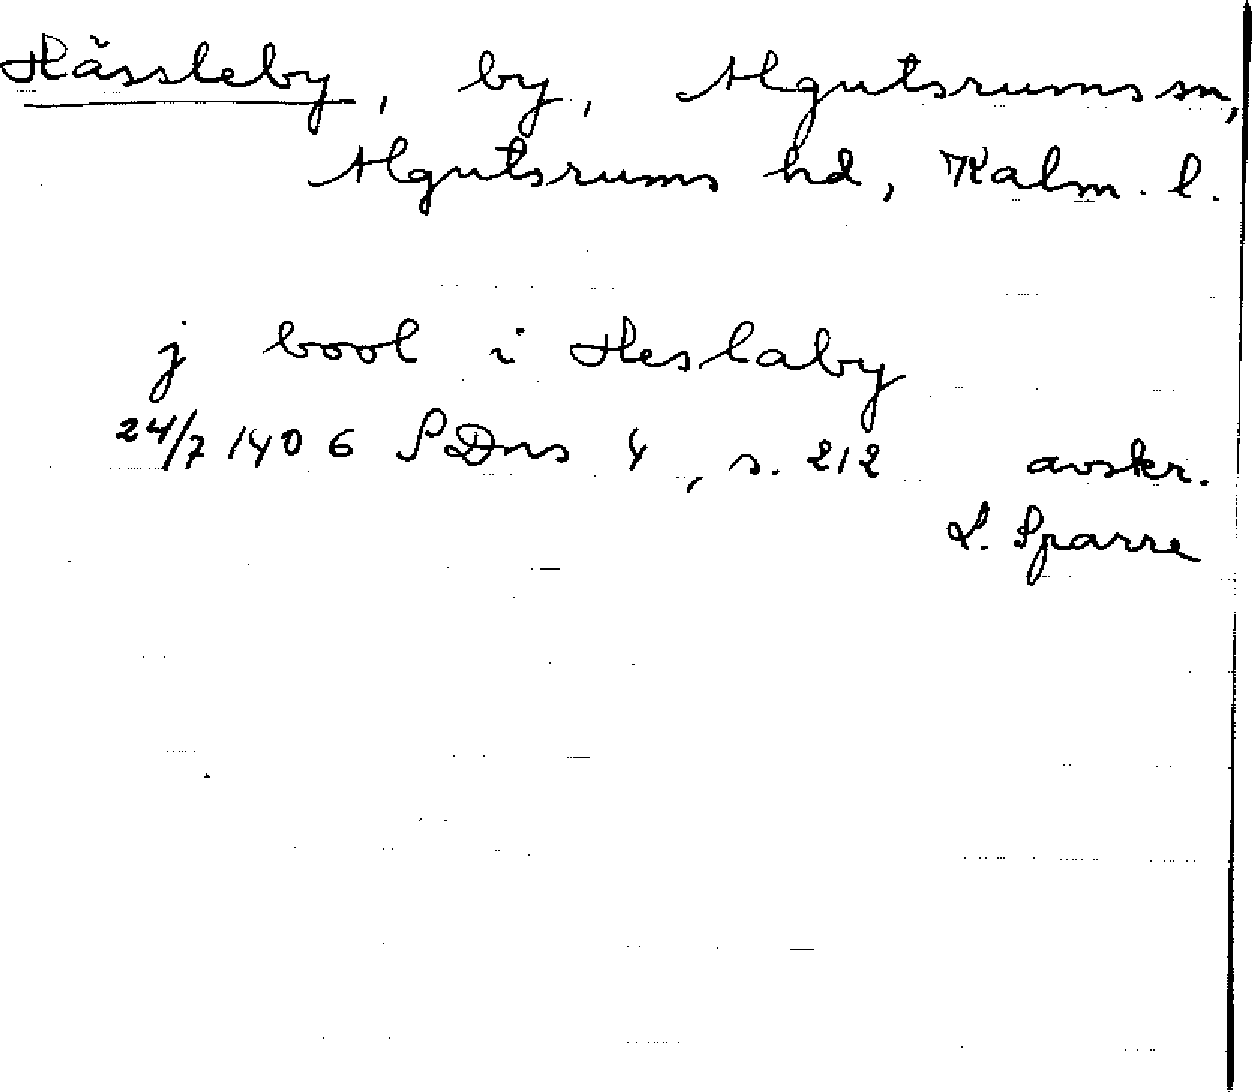 Hässleby, by, Algutsrums sn,
Algutsrums hd, Kalm. l.
j bool i Heslaby
24/7 1406 SDns 4, s. 212 avskr.
L. Sparre